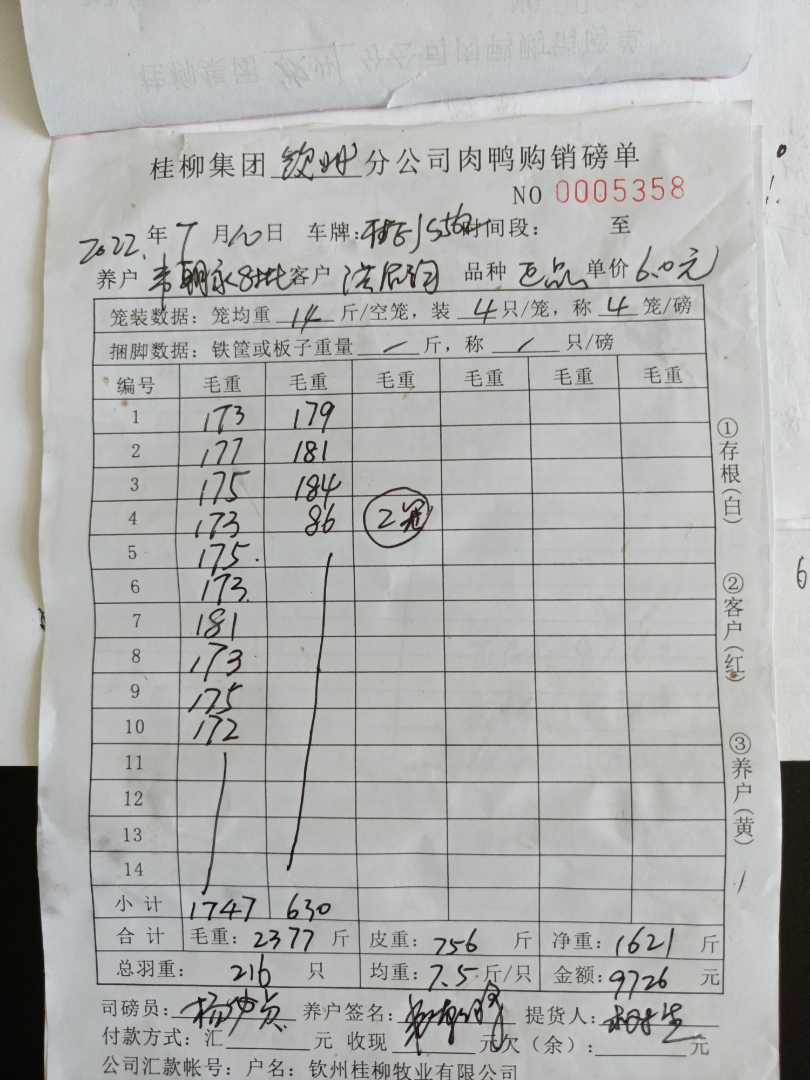 桂柳集团 钦州 分公司肉鸭购销磅单
NO 0005358
2022年7月10日 车牌: 时间段: 至
养户 韦朝永8批 客户 品种 单价 6.0元
笼装数据: 笼均重 14 斤/空笼, 装 4 只/笼, 称 4 笼/磅
捆脚数据: 铁筐或板子重量 / 斤, 称 / 只/磅
编号 毛重 毛重 毛重 毛重 毛重 毛重
1 173 179
2 177 181
3 175 184
4 173 86 2笼
5 175
6 173
7 181
8 173
9 175
10 172
11
12
13
14
小计 1747 630
合计 毛重: 2377 斤 皮重: 756 斤 净重: 1621 斤
总羽重: 216 只 均重: 7.5 斤/只 金额: 9726 元
司磅员: 养户签名: 提货人:
付款方式: 汇 元 收现 元欠(余): 元
公司汇款帐号: 户名: 钦州桂柳牧业有限公司
①存根(白)
②客户(红)
③养户(黄)